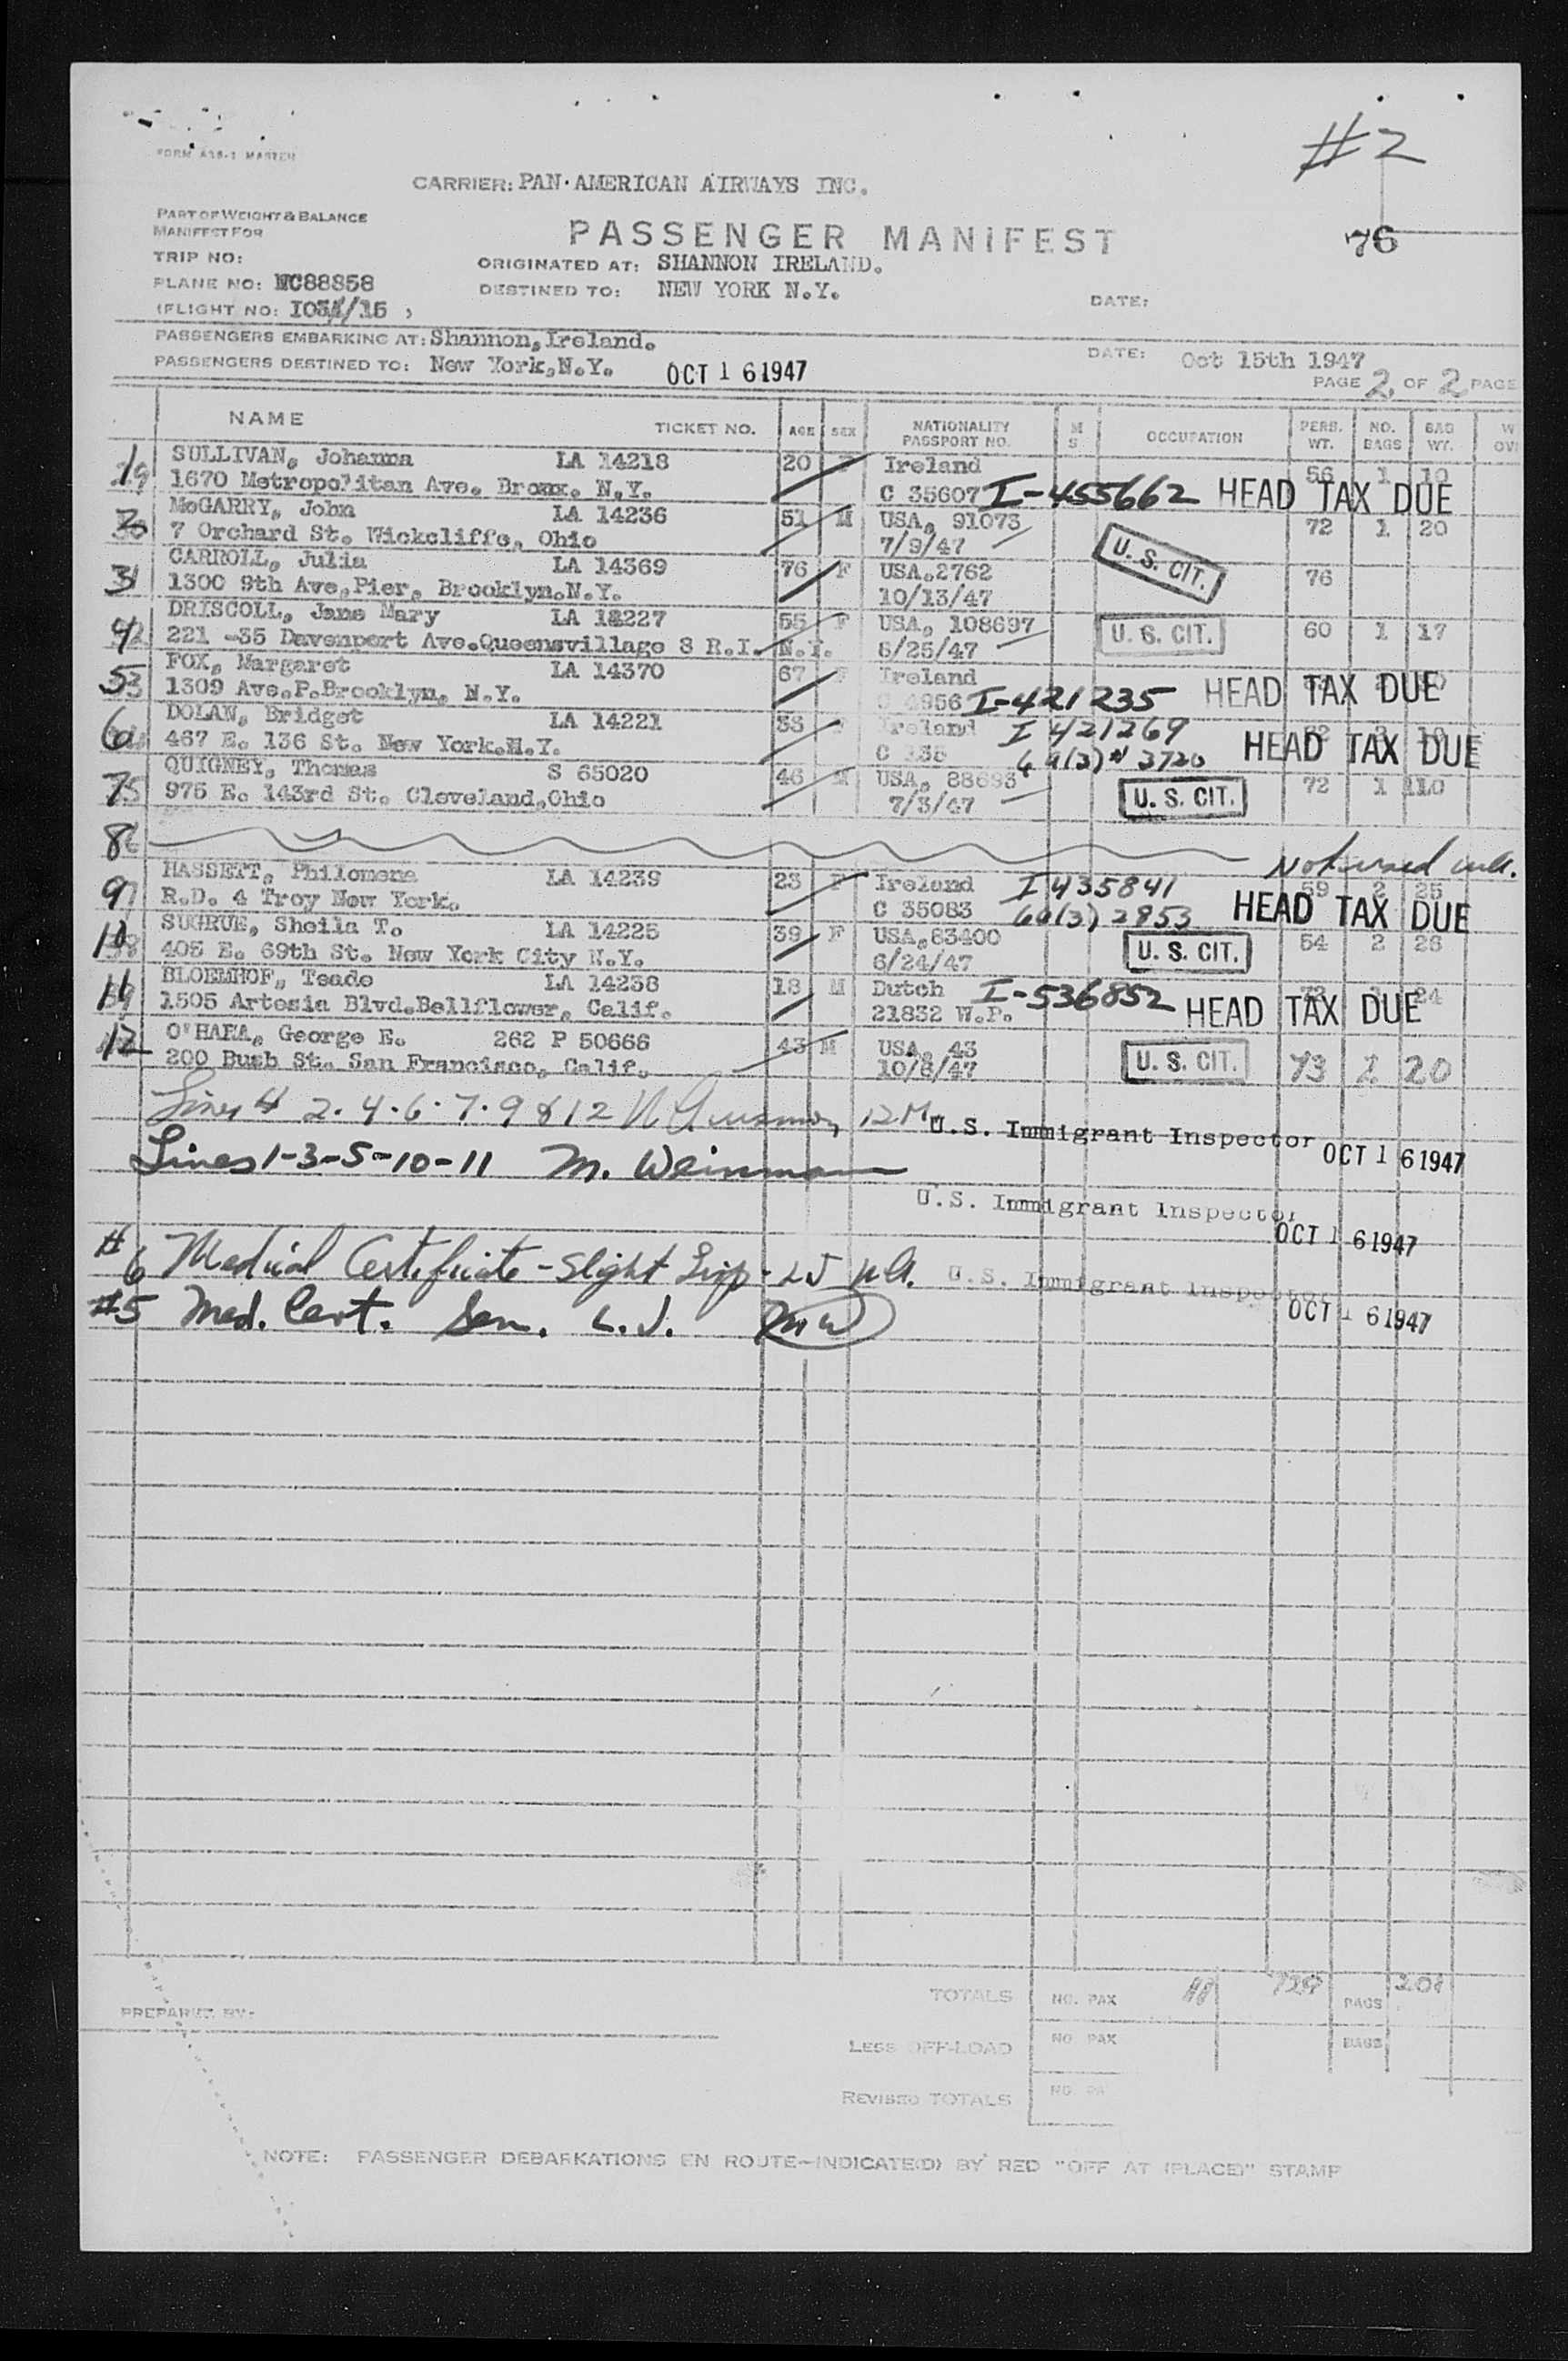 FORM A35-1 MASTER
#2
CARRIER: PAN·AMERICAN AIRWAYS INC.
PART OF WEIGHT & BALANCE
MANIFEST FOR
PASSENGER MANIFEST
76
TRIP NO:
ORIGINATED AT: SHANNON IRELAND.
PLANE NO: NC88858
DESTINED TO: NEW YORK N.Y.
DATE:
(FLIGHT NO:
PASSENGERS EMBARKING AT: Shannon, Ireland.
DATE: Oct 15th 1947
PASSENGERS DESTINED TO: New York, N.Y. OCT 16 1947
PAGE 2 OF 2 PAGE
NAME TICKET NO. AGE SEX NATIONALITY PASSPORT NO. M S OCCUPATION PERS. WT. NO. BAGS BAG WT. W OV
1 SULLIVAN, Johanna LA 14218 20 F Ireland 56 1 10
1670 Metropolitan Ave. Bronx. N.Y. C 35607 I-455662 HEAD TAX DUE
McGARRY, John LA 14236 51 M USA, 91073 72 1 20
7 Orchard St. Wickcliffe, Ohio 7/9/47 U. S. CIT.
3 CARROLL, Julia LA 14369 76 F USA.2762 76
1300 9th Ave,Pier, Brooklyn.N.Y. 10/13/47
4 DRISCOLL, Jane Mary 55 F USA, 108697 U. S. CIT. 60 1 17
221 -35 Davenport Ave.Queensvillage 8 R.I. N.Y. /25/47
5 FOX, Margaret LA 14370 67 F Ireland
1309 Ave.P.Brooklyn, N.Y. C 4956 I-421235 HEAD TAX DUE
6 DOLAN, Bridget LA 14221 Ireland I 421269
467 E. 136 St. New York.N.Y. HEAD TAX DUE
7 QUIGNEY, Thomas S 65020 46 M USA, 88693 72 1
975 E. 143rd St. Cleveland,Ohio 7/3/47 U. S. CIT.
8
9 HASSETT, Philomena LA 14239 23 F Ireland I 435841 59 2 25
R.D. 4 Troy New York. C 35083 6a(3) 2953 HEAD TAX DUE
10 SUGRUE, Sheila T. LA 14225 39 F USA,83400 54 2 26
405 E. 69th St. New York City N.Y. 6/24/47 U. S. CIT.
11 BLOEMHOF, Teade LA 14238 18 M Dutch I-536852
1505 Artesia Blvd.Bellflower, Calif. 21832 W.P. HEAD TAX DUE
12 O'HARA, George E. 262 P 50666 43 M USA, 43 U. S. CIT. 73 2 20
200 Bush St. San Francisco, Calif. 10/8/47
Lines 2·4·6·7·9 & 12
U.S. Immigrant Inspector OCT 16 1947
Lines 1-3-5-10-11 M. Weinman
U.S. Immigrant Inspector
OCT 16 1947
#6 Medical Certificate - Slight Limp
U.S. Immigrant Inspector
#5 Med. Cert. Sen. L.J. MW
OCT 16 1947
TOTALS NO. PAX BAGS
PREPARED BY:
LESS OFF-LOAD NO. PAX BAGS
REVISED TOTALS NO. PA
NOTE: PASSENGER DEBARKATIONS EN ROUTE—INDICATE(D) BY RED "OFF AT (PLACE)" STAMP